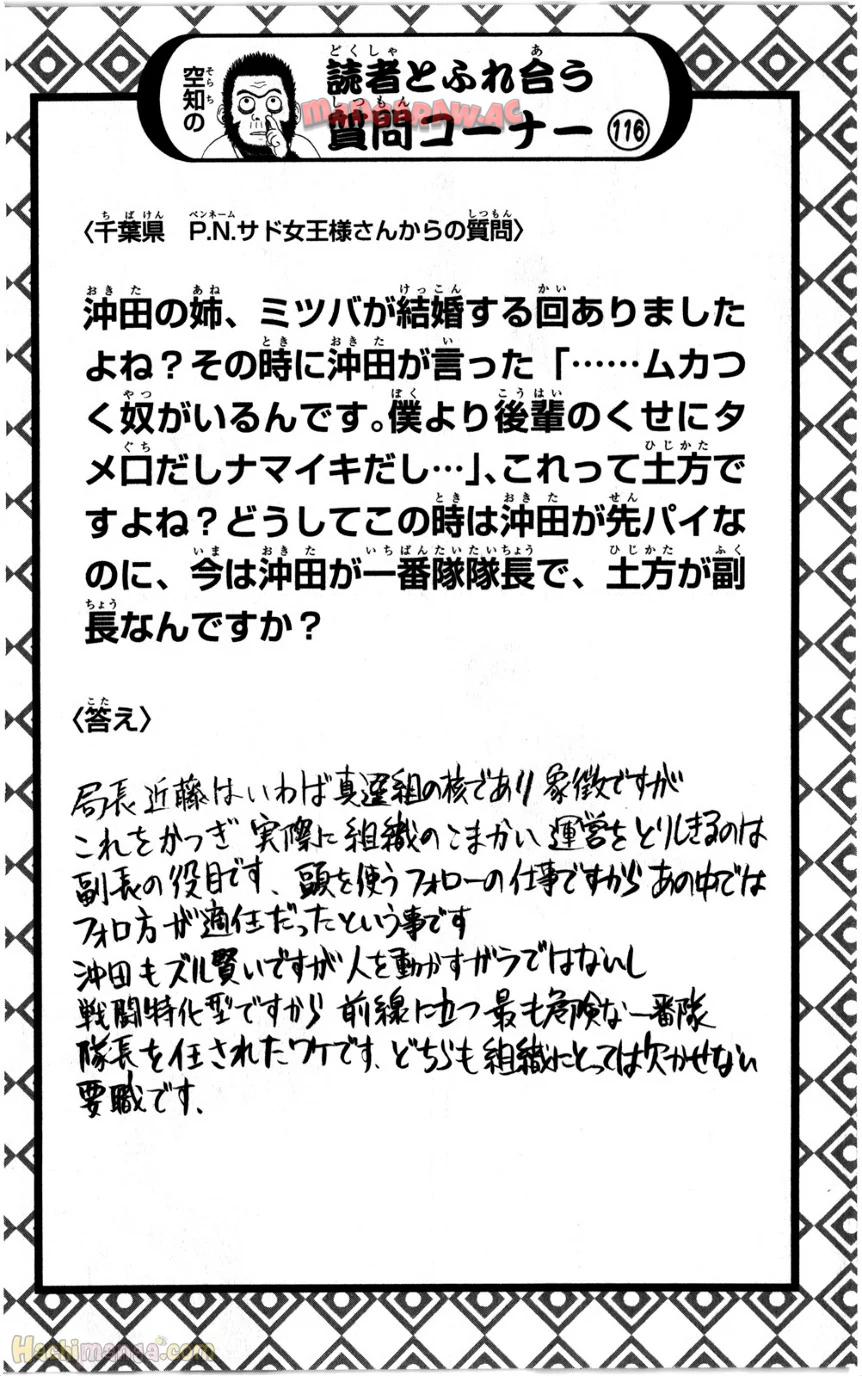 空知の
読者とふれ合う
質問コーナー 116
mangaRAW.AC
〈千葉県　P.N.サド女王様さんからの質問〉
沖田の姉、ミツバが結婚する回ありました
よね？その時に沖田が言った「……ムカつ
く奴がいるんです。僕より後輩のくせにタ
メ口だしナマイキだし…」、これって土方で
すよね？どうしてこの時は沖田が先パイな
のに、今は沖田が一番隊隊長で、土方が副
長なんですか？
〈答え〉
局長近藤はいわば真選組の核であり象徴ですが
これをかつぎ 実際に組織のこまかい運営をとりしきるのは
副長の役目です、頭を使うフォローの仕事ですからあの中では
フォロ方が適任だったという事です
沖田もズル賢いですが人を動かすガラではないし
戦闘特化型ですから前線に立つ最も危険な一番隊
隊長を任されたワケです、どちらも組織にとっては欠かせない
要職です、
Hachimanga.com